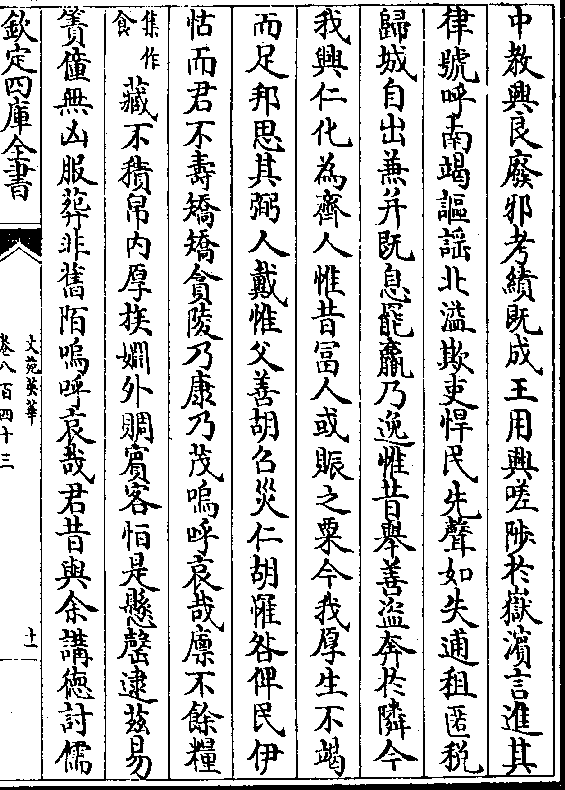 中教興良廢邪考績既成王用興嗟陟於嶽濱言進其
律號呼南竭謳謡北溢欺吏悍民先聲如失逋租匿税
歸城自出兼并既息罷羸乃逸惟昔舉善盗奔於隣今
我興仁化為齊人惟昔冨人或賑之粟今我厚生不竭
而足邦思其弼人戴惟父善胡召災仁胡罹咎俾民伊
怙而君不壽矯矯貪陵乃康乃茂嗚呼哀哉廪不餘糧
集作食 藏不積帛内厚族婣外賙賓客恒是懸罄逮兹易
簀僮無凶服葬非舊陌嗚呼哀哉君昔與余講徳討儒
欽定四庫全書
文苑英華
卷八百四十三
十一